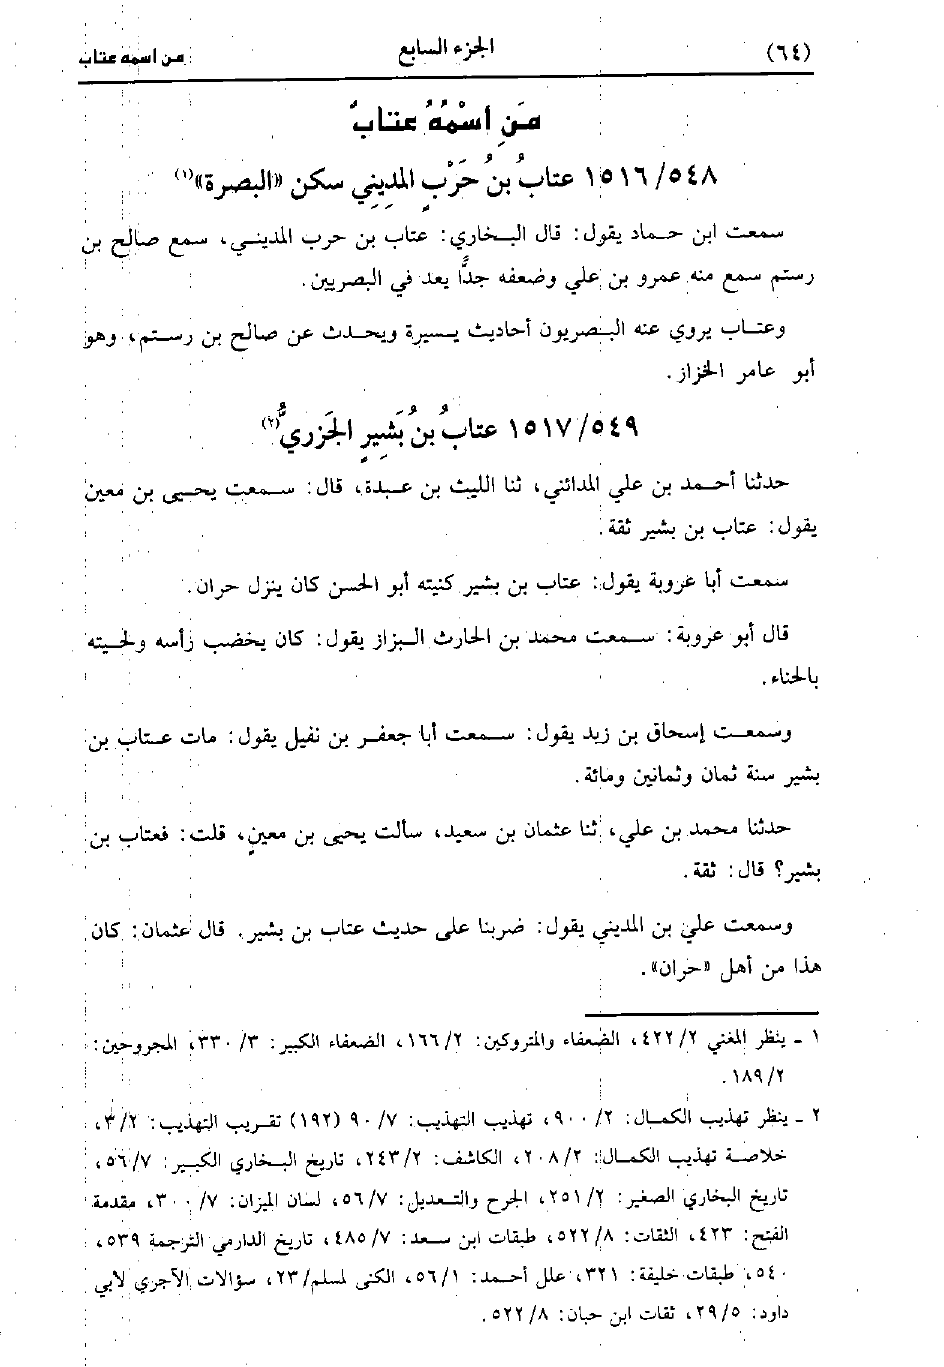 (٦٤) الجزء السابع من اسمه عتاب
مَنِ اسْمُهُ عتابٌ
١٥١٦/٥٤٨ عتابُ بنُ حَرْبٍ المدِينِي سكن «البصرة»(١)
سمعت ابن حماد يقول: قال البخاري: عتاب بن حرب المديني، سمع صالح بن
رستم سمع منه عمرو بن علي وضعفه جدًّا يعد في البصريين.
وعتاب يروي عنه البصريون أحاديث يسيرة ويحدث عن صالح بن رستم، وهو
أبو عامر الخزاز.
١٥١٧/٥٤٩ عتابُ بنُ بَشِيرٍ الجَزَرِيُّ(٢)
حدثنا أحمد بن علي المدائني، ثنا الليث بن عبدة، قال: سمعت يحيى بن معين
يقول: عتاب بن بشير ثقة.
سمعت أبا عروبة يقول: عتاب بن بشير كنيته أبو الحسن كان ينزل حران.
قال أبو عروبة: سمعت محمد بن الحارث البزاز يقول: كان يخضب رأسه ولحيته
بالحناء.
وسمعت إسحاق بن زيد يقول: سمعت أبا جعفر بن نفيل يقول: مات عتاب بن
بشير سنة ثمان وثمانين ومائة.
حدثنا محمد بن علي، ثنا عثمان بن سعيد، سألت يحيى بن معين، قلت: فعتاب بن
بشير؟ قال: ثقة.
وسمعت علي بن المديني يقول: ضربنا على حديث عتاب بن بشير. قال عثمان: كان
هذا من أهل «حران».
١ - ينظر المغني ٤٢٢/٢، الضعفاء والمتروكين: ١٦٦/٢، الضعفاء الكبير: ٣٣٠/٣، المجروحين:
١٨٩/٢.
٢ - ينظر تهذيب الكمال: ٩٠٠/٢، تهذيب التهذيب: ٩٠/٧ (١٩٢) تقريب التهذيب: ٣/٢،
خلاصة تهذيب الكمال: ٢٠٨/٢، الكاشف: ٢٤٣/٢، تاريخ البخاري الكبير: ٥٦/٧،
تاريخ البخاري الصغير: ٢٥١/٢، الجرح والتعديل: ٥٦/٧، لسان الميزان: ٣٠٠/٧، مقدمة
الفتح: ٤٢٣، الثقات: ٥٢٢/٨، طبقات ابن سعد: ٤٨٥/٧، تاريخ الدارمي الترجمة ٥٣٩،
٥٤٠، طبقات خليفة: ٣٢١، علل أحمد: ٥٦/١، الكنى لمسلم/٢٣، سؤالات الآجري لأبي
داود: ٢٩/٥، ثقات ابن حبان: ٥٢٢/٨.